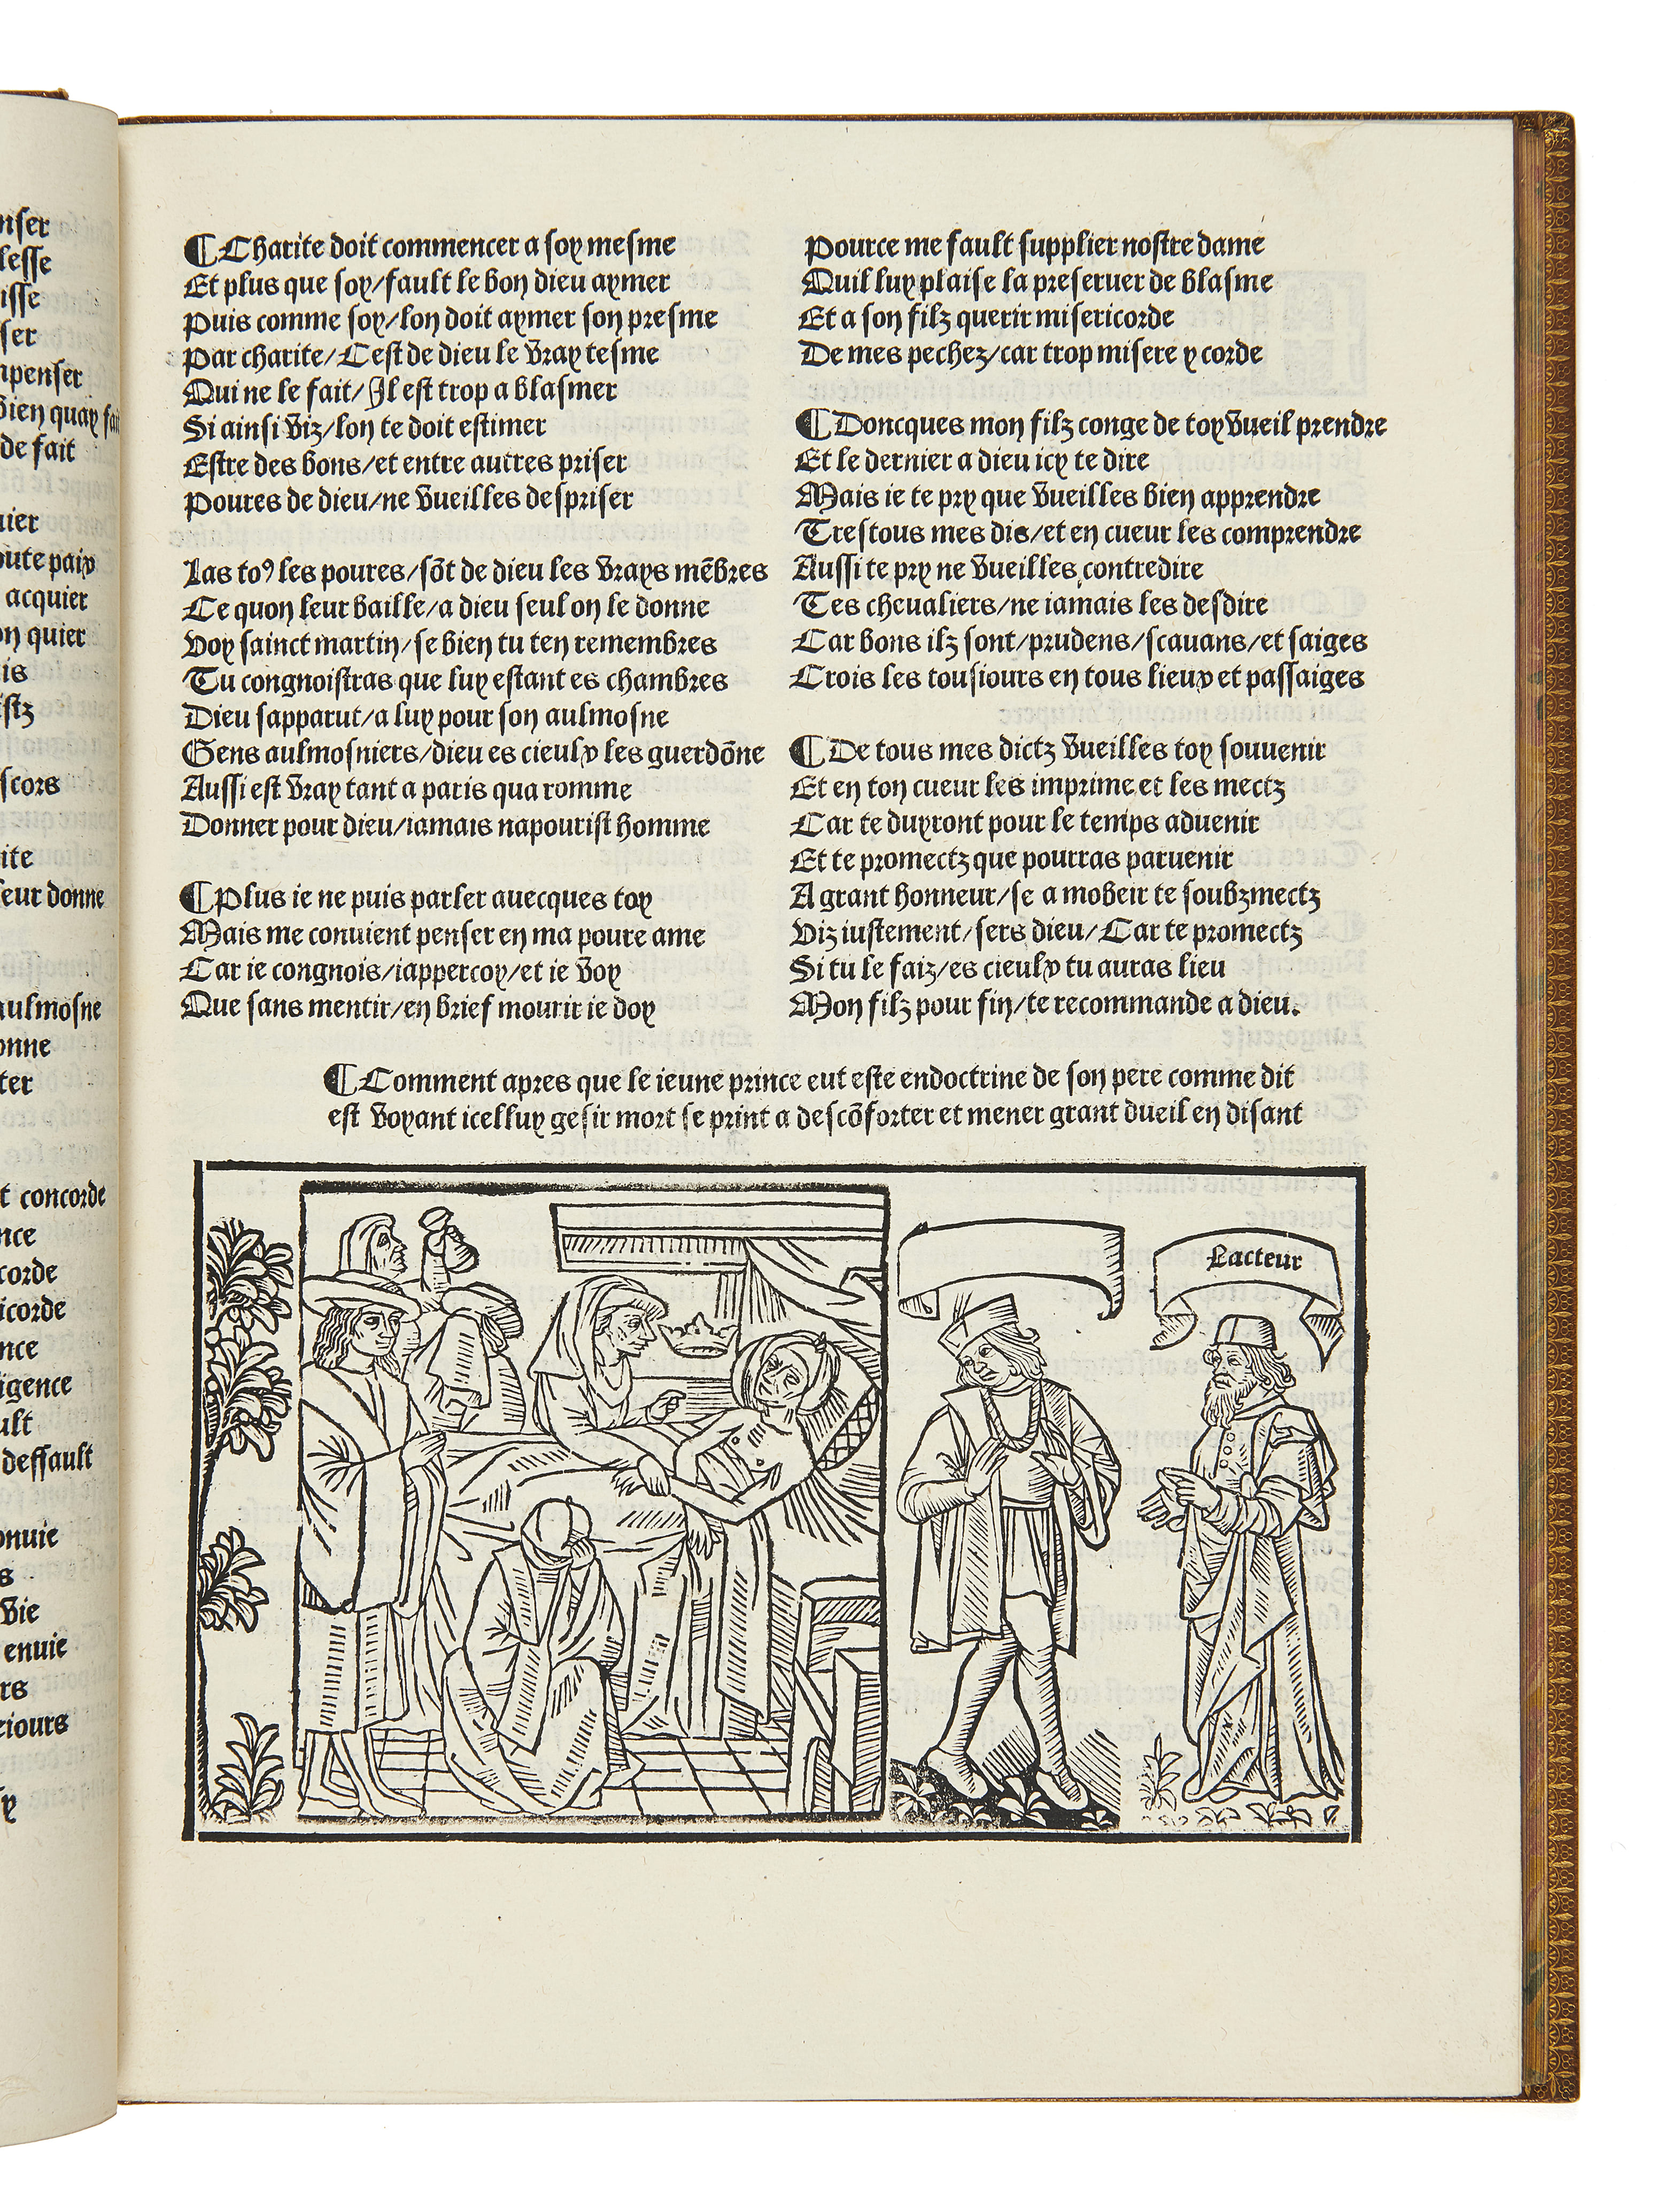 nser
lesse
isse
ser
npenser
bien quay fai
de fait
uier
oute paix
acquier
on quier
is
scors
ite
eur donne
aulmosne
onne
ter
t concorde
nce
corde
icorde
nce
igence
ult
deffault
onuie
s
vie
enuie
rs
eiours
¶ Charite doit commencer a soy mesme
Et plus que soy/fault le bon dieu aymer
Puis comme soy/lon doit aymer son presme
Par charite/Cest de dieu le vray tesme
Qui ne le fait/Il est trop a blasmer
Si ainsi viz/lon te doit estimer
Estre des bons/et entre autres priser
Poures de dieu/ne vueilles despriser
Las toꝰ les poures/sōt de dieu les vrays mēbres
Ce quon leur baille/a dieu seul on le donne
Voy sainct martin/se bien tu ten remembres
Tu congnoistras que luy estant es chambres
Dieu sapparut/a luy pour son aulmosne
Gens aulmosniers/dieu es cieulx les guerdōne
Aussi est vray tant a paris qua romme
Donner pour dieu/iamais napourist homme
¶ Plus ie ne puis parler auecques toy
Mais me conuient penser en ma poure ame
Car ie congnois/iappercoy/et ie voy
Que sans mentir/en brief mourir ie doy
Pource me fault supplier nostre dame
Quil luy plaise la preseruer de blasme
Et a son filz querir misericorde
De mes pechez/car trop misere y corde
¶ Doncques mon filz conge de toy vueil prendre
Et le dernier a dieu icy te dire
Mais ie te pry que vueilles bien apprendre
Trestous mes dis/et en cueur les comprendre
Aussi te pry ne vueilles contredire
Tes cheualiers/ne iamais les desdire
Car bons ilz sont/prudens/scauans/et saiges
Crois les tousiours en tous lieux et passaiges
¶ De tous mes dictz vueilles toy souuenir
Et en ton cueur les imprime et les mectz
Car te duyront pour le temps aduenir
Et te promectz que pourras paruenir
A grant honneur/se a mobeir te soubzmectz
Viz iustement/sers dieu/Car te promectz
Si tu le faiz/es cieulx tu auras lieu
Mon filz pour fin/te recommande a dieu.
¶ Comment apres que le ieune prince eut este endoctrine de son pere comme dit
est voyant icelluy gesir mort se print a descōforter et mener grant dueil en disant
Lacteur